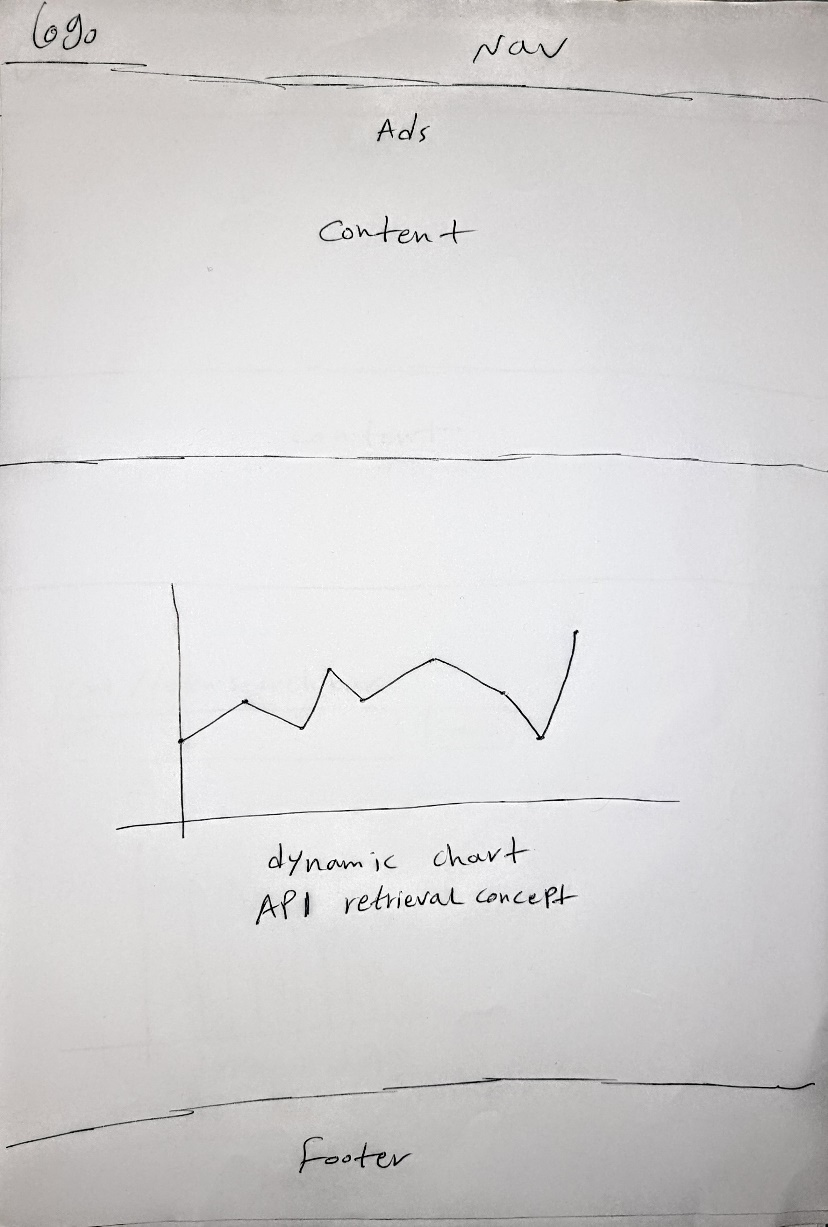 Logo
Nav
Ads
Content
dynamic chart
API retrieval concept
Footer